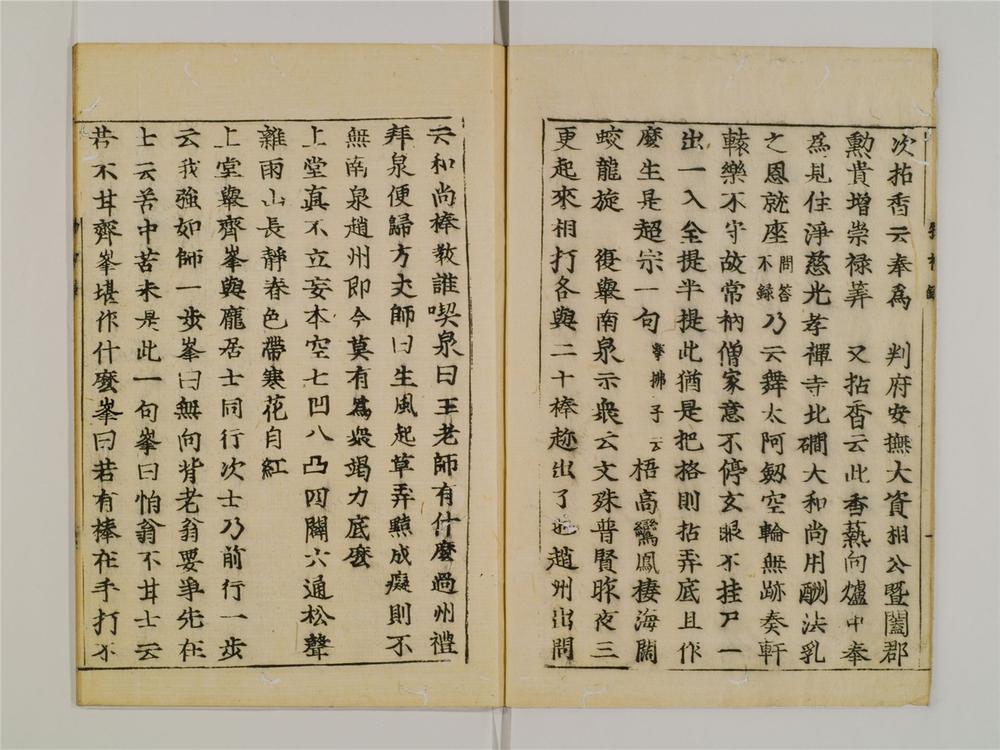 次拈香云奉為　判府安撫大資相公暨闔郡
勳貴增崇祿筭　又拈香云此香爇向爐中奉
爲見住淨慈光孝禪寺北磵大和尚用酬法乳
之恩就座問答不錄乃云舞太阿劔空輪無跡奏軒
轅樂不守故常衲僧家意不停玄眼不挂戸一
出一入全提半提此猶是把格則拈弄底且作
麼生是超宗一句擊拂子云梧高鸞鳳棲海闊
蛟龍旋　復舉南泉示衆云文殊普賢昨夜三
更起來相打各與二十棒趂出了也趙州出問
云和尚棒教誰喫泉曰王老師有什麼過州禮
拜泉便歸方丈師曰生風起草弄黠成癡則不
無南泉趙州即今莫有爲衆竭力底麽
上堂眞不立妄本空七凹八凸四闢六通松聲
雜雨山長靜春色帶寒花自紅
上堂舉齊峯與龐居士同行次士乃前行一步
云我強如師一步峯曰無向背老翁要爭先在
士云苦中苦未是此一句峯曰怕翁不甘士云
若不甘齊峯堪作什麼峯曰若有棒在手打不